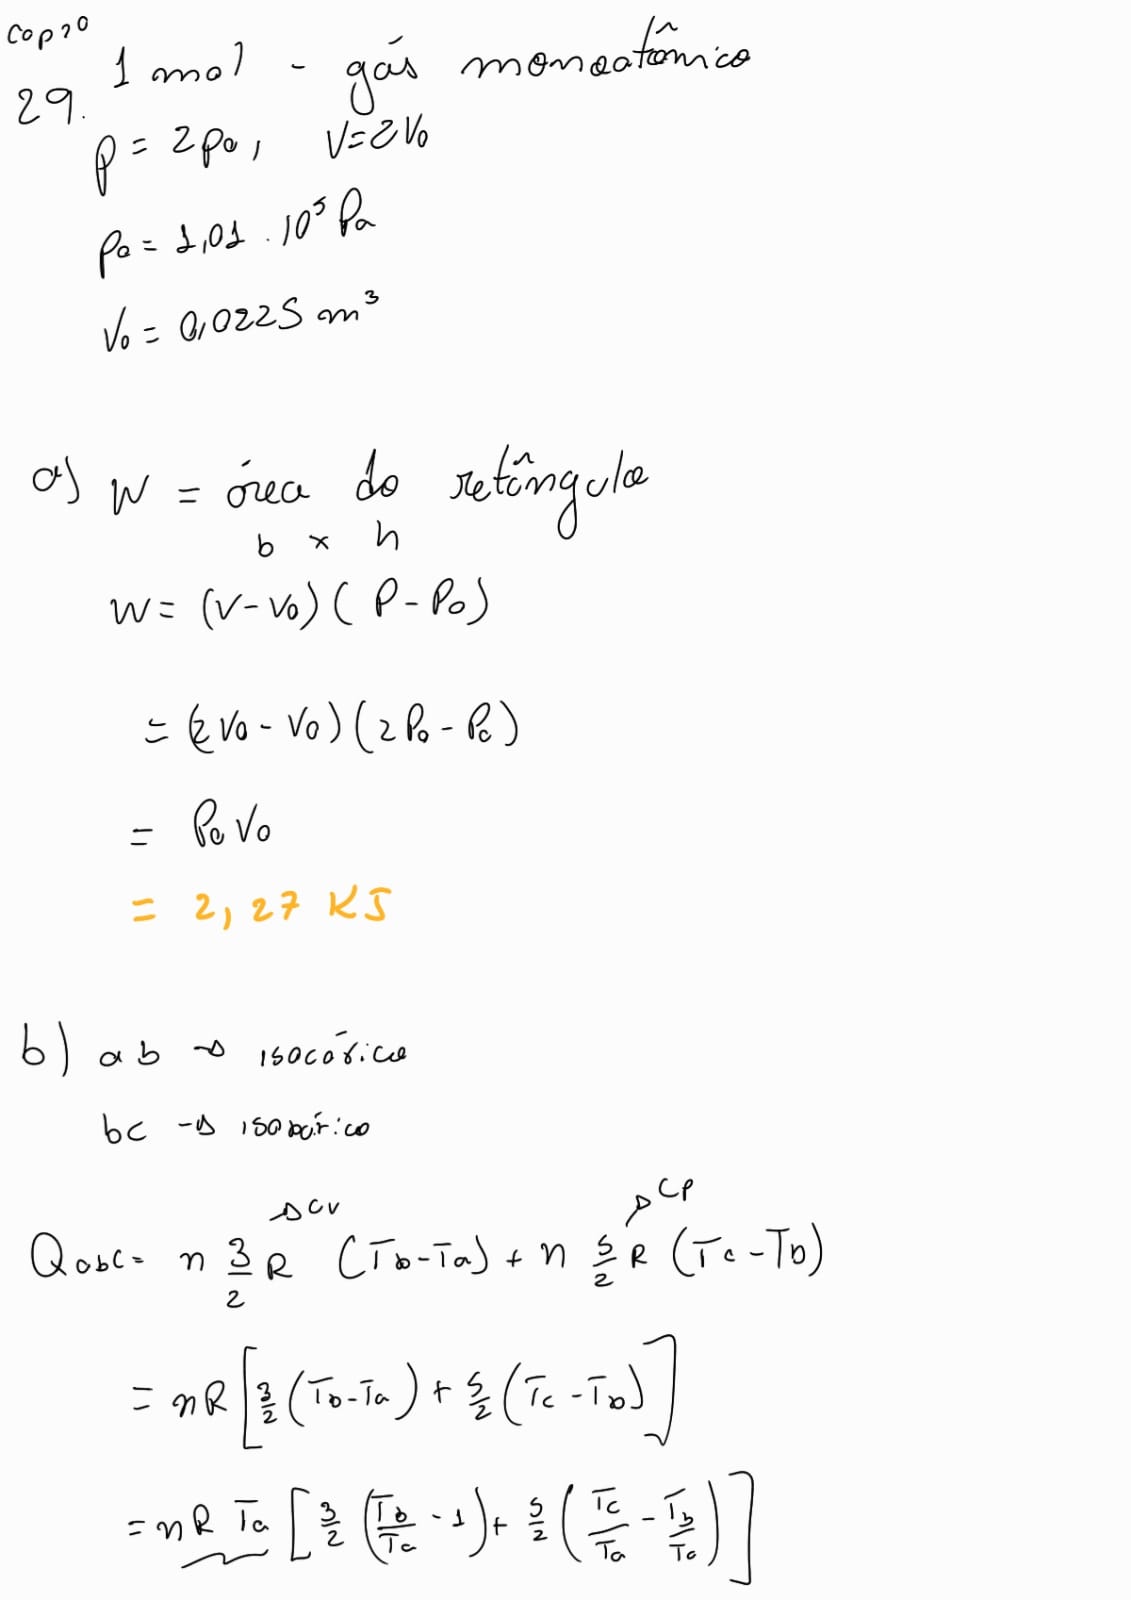 Cap 20
29. 1 mol - gás monoatômico
p = 2p0, V=2V0
p0 = 1,01 . 10⁵ Pa
V0 = 0,0225 m³
a) W = área do retângulo
b x h
W = (V-V0) (P-P0)
= (2V0 - V0) (2P0 - P0)
= P0V0
= 2,27 KJ
b) ab → isocórico
bc → isobárico
→ CV → CP
Qabc = n 3/2 R (Tb-Ta) + n 5/2 R (Tc-Tb)
= nR [3/2 (Tb-Ta) + 5/2 (Tc-Tb)]
= nR Ta [3/2 (Tb/Ta - 1) + 5/2 (Tc/Ta - Tb/Ta)]